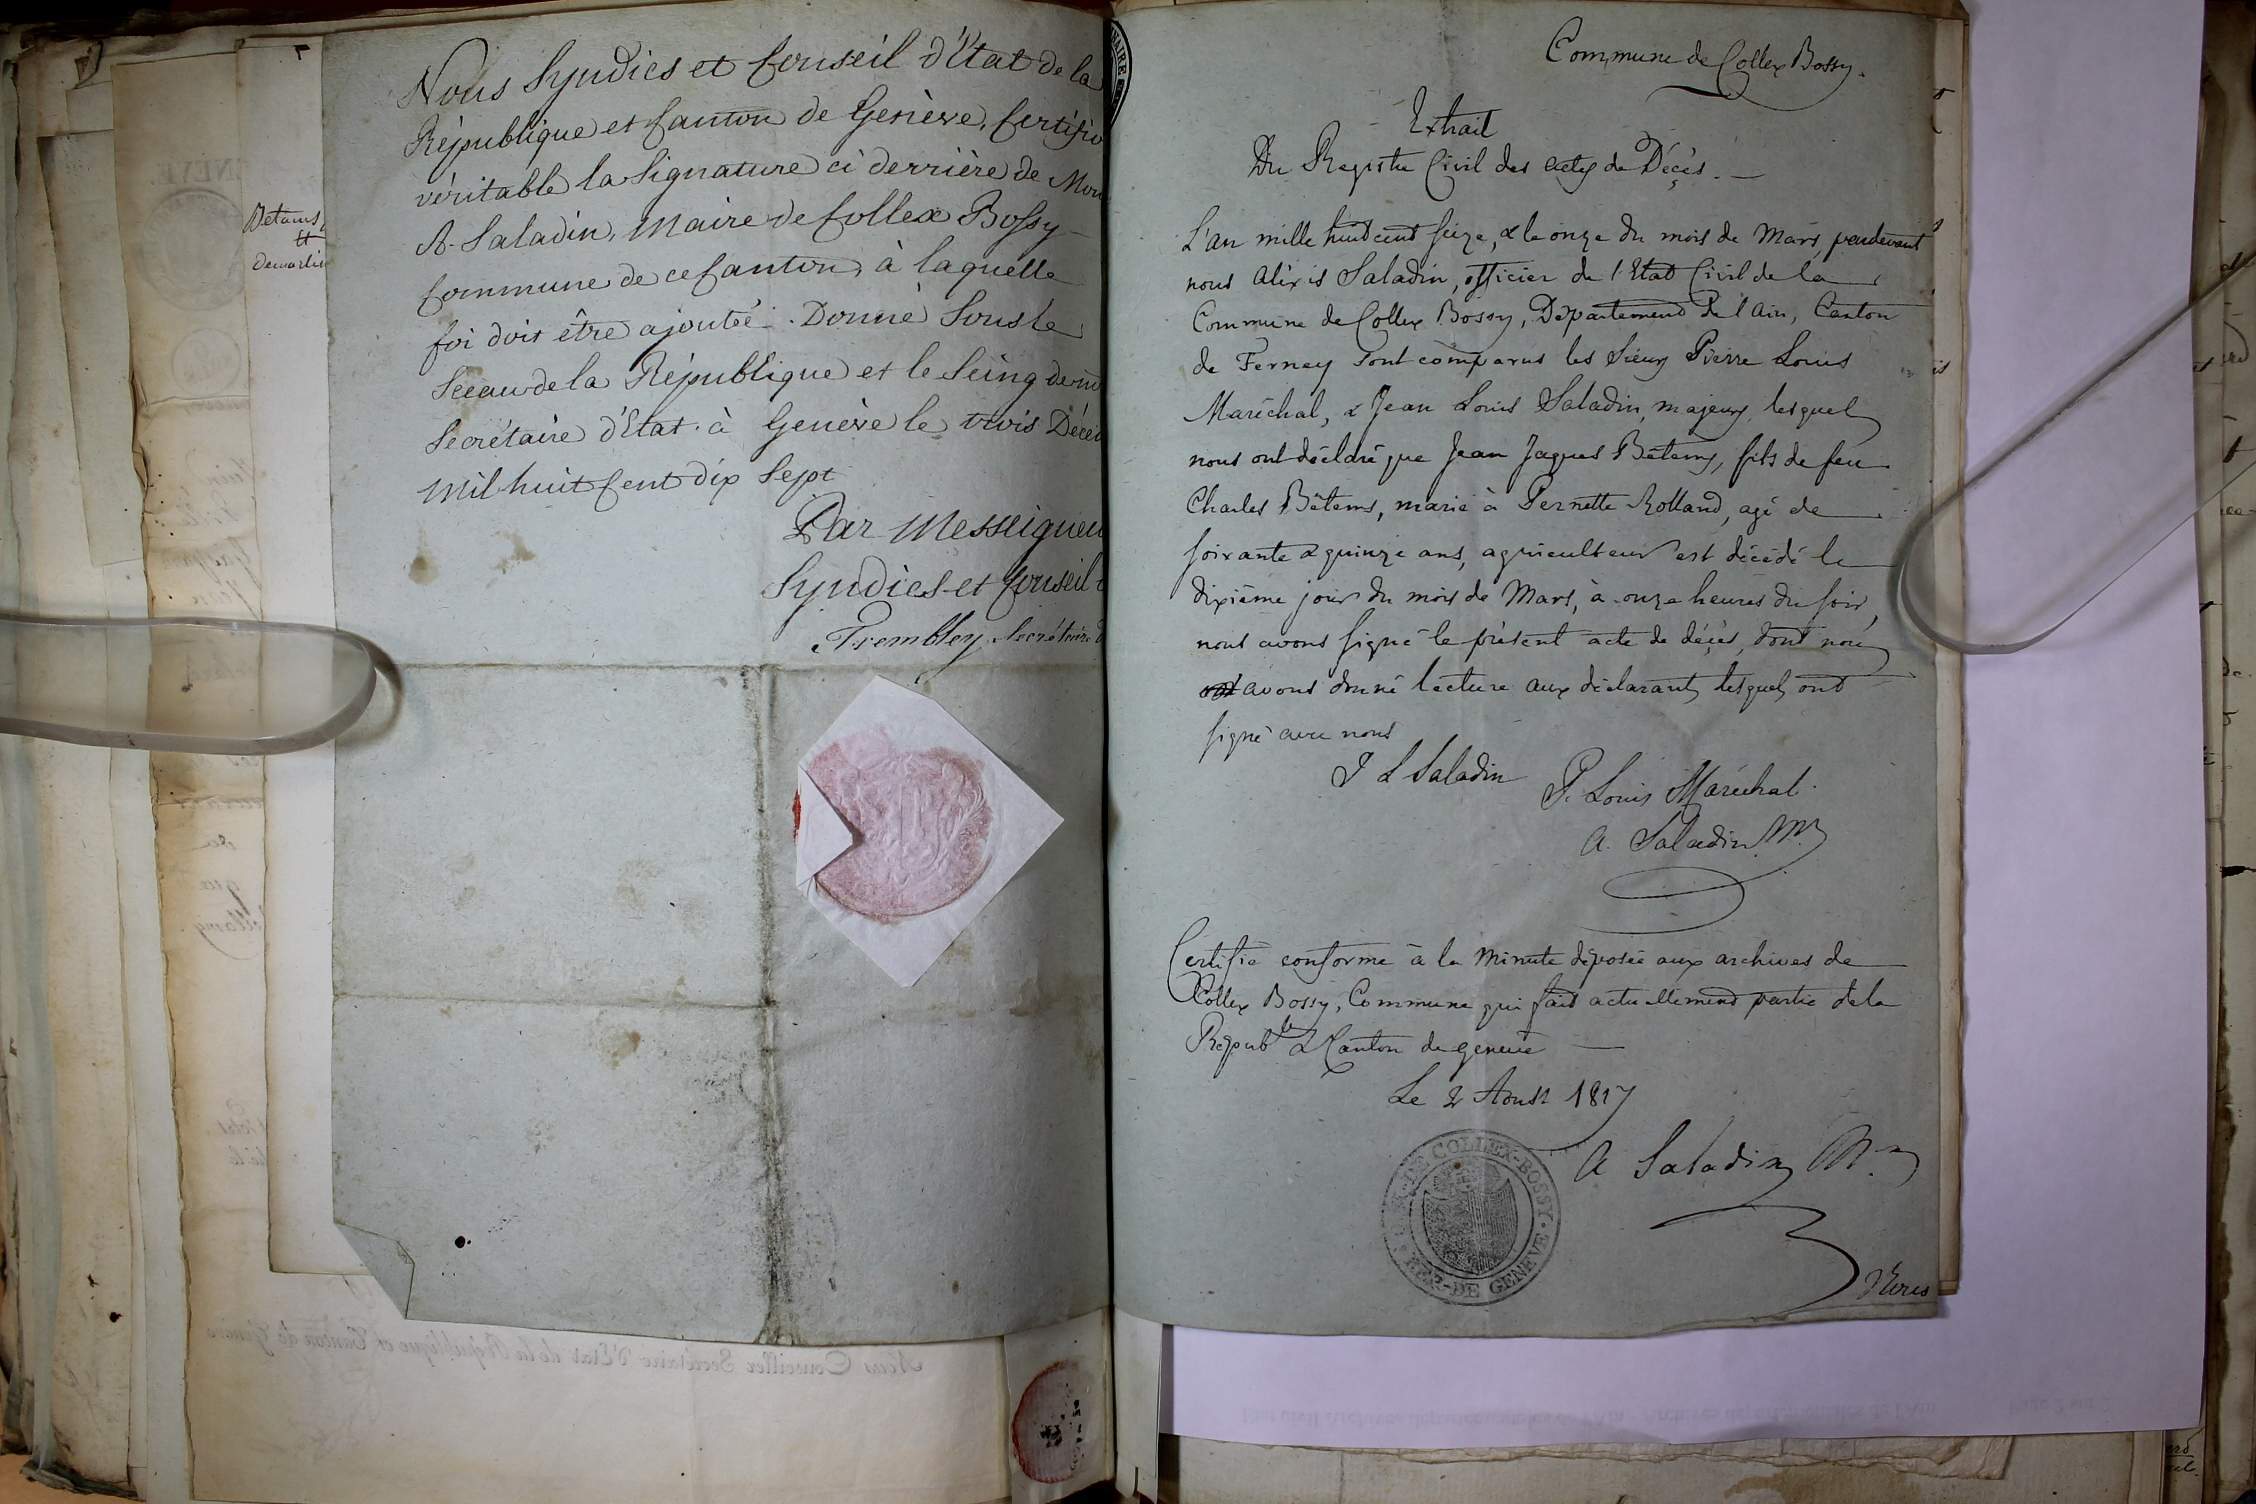 Nous Syndics et Conseil d'Etat de la
République et Canton de Genève, Certifio
véritable la Signature ci derrière de Mon
A. Saladin, Maire de Collex Bossy
Commune de ce Canton, à laquelle
foi doit être ajoutée. Donné Sous le
Sceau de la République et le Seing de
Secrétaire d'Etat. à Genève le trois Décem
Mil huit Cent dix Sept
Par Messeigneu
Syndics et Conseil
Trembley, Secrétaire d
Betems,
et
Commune de Collex Bossy.
Extrait
Du Registre Civil des actes de Décès. —
L'an mille huit cent seize, & le onze du mois de Mars, pardevant
nous Alexis Saladin, officier de l'Etat Civil de la
Commune de Collex Bossy, Département de l'Ain, Canton
de Ferney sont comparus les Sieurs Pierre Louis
Maréchal, & Jean Louis Saladin, majeurs, lesquels
nous ont déclaré que Jean Jaques Bétems, fils de feu
Charles Bétems, marié à Pernette Rolland, agé de
soixante & quinze ans, agriculteur est décédé le
dixième jour du mois de Mars, à onze heures du soir,
nous avons signé le présent acte de décès, dont nous
avons donné lecture aux déclarants, lesquels ont
signé avec nous
J L Saladin P. Louis Maréchal.
A. Saladin Mr.
Certifié conforme à la Minute déposée aux archives de
Collex Bossy, Commune qui fait actuellement partie de la
Republe & Canton de Geneve —
Le 2 Aoust 1817
A Saladin Mre
DE COLLEX-BOSSY. REP. DE GENEVE